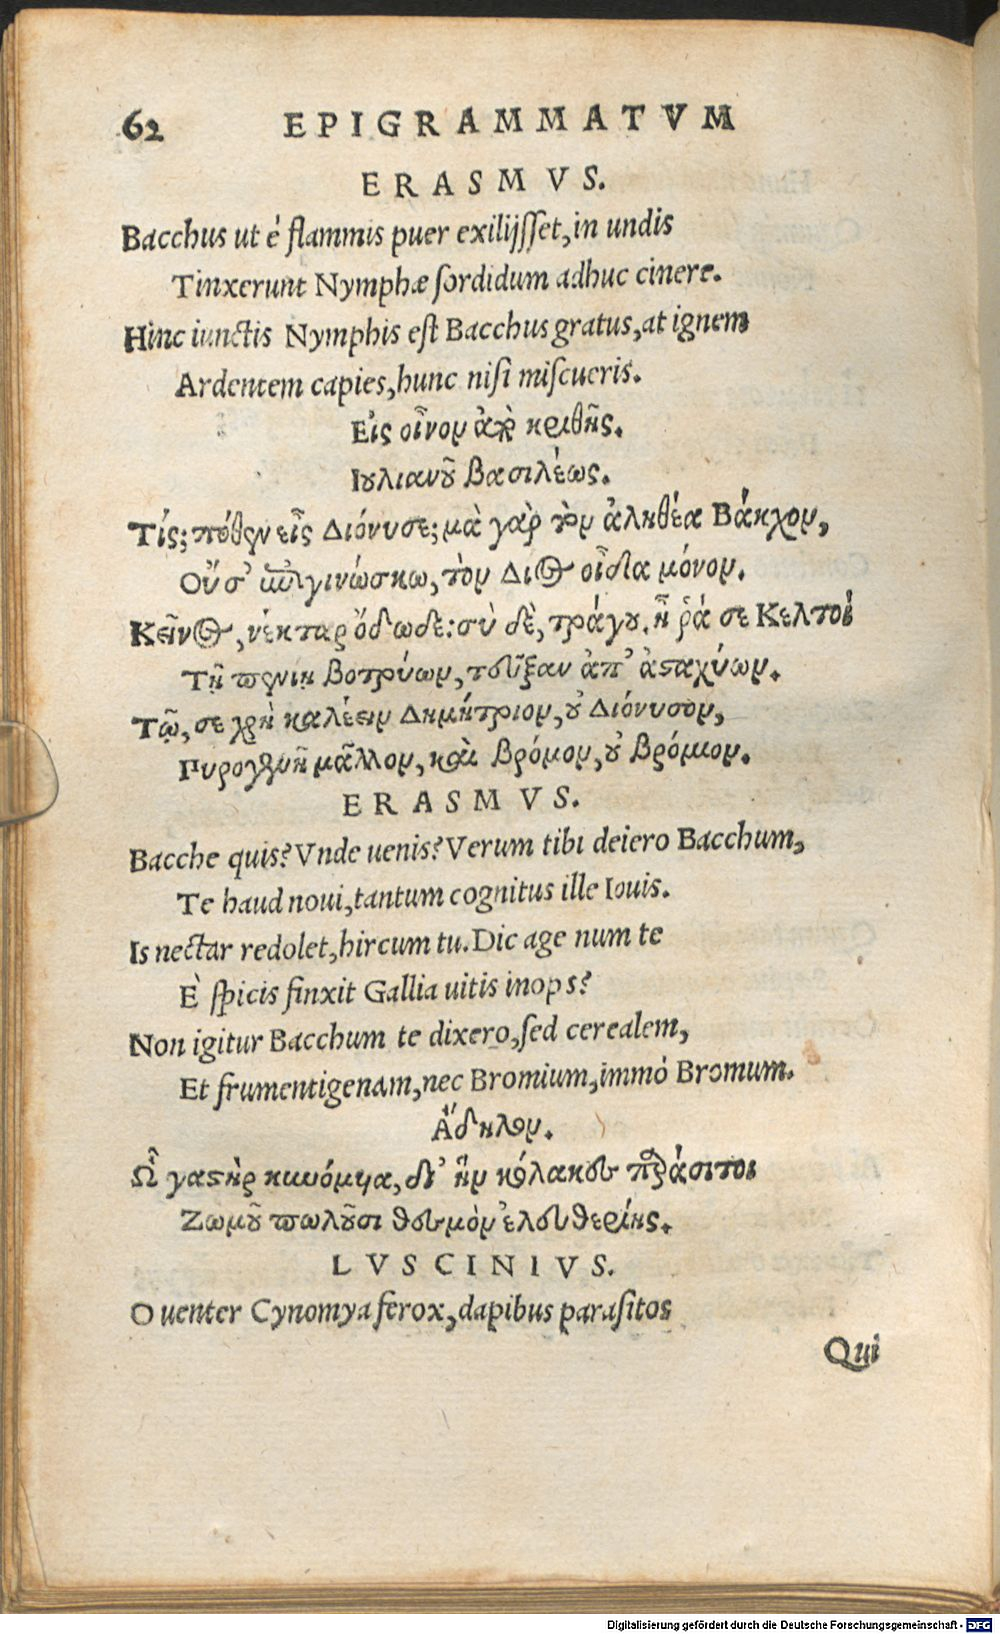 62 EPIGRAMMATVM
ERASMVS.
Bacchus ut é flammis puer exilijsset, in undis
Tinxerunt Nymphæ sordidum adhuc cinere.
Hinc iunctis Nymphis est Bacchus gratus, at ignem
Ardentem capies, hunc nisi miscueris.
Εἰς οἶνον ἀπὸ κριθῆς.
Ιουλιανοῦ βασιλέως.
Τίς; πόθεν εἶς Διόνυσε; μὰ γὰρ τὸν ἀληθέα Βάκχον,
Οὔ σ' ἐπιγινώσκω, τὸν Διὸς οἶδα μόνον.
Κεῖνος, νέκταρ ὄδωδε: σὺ δὲ, τράγου. ἦ ῥά σε Κελτοὶ
Τῇ πενίῃ βοτρύων, τεῦξαν ἀπ' ἀσταχύων.
Τῷ, σε χρὴ καλέειν Δημήτριον, οὐ Διόνυσον,
Πυρογενῆ μᾶλλον, καὶ βρόμον, οὐ βρόμιον.
ERASMVS.
Bacche quis? Vnde uenis? Verum tibi deiero Bacchum,
Te haud noui, tantum cognitus ille Iouis.
Is nectar redolet, hircum tu. Dic age num te
È spicis finxit Gallia uitis inops?
Non igitur Bacchum te dixero, sed cerealem,
Et frumentigenam, nec Bromium, immó Bromum.
Ἄδηλον.
Ὦ γαστὴρ κυνόμυια, δι' ἣν κόλακες παράσιτοι
Ζωμοῦ πωλοῦσι θεσμὸν ἐλευθερίης.
LVSCINIVS.
O uenter Cynomya ferox, dapibus parasitos
Qui
Digitalisierung gefördert durch die Deutsche Forschungsgemeinschaft - DFG